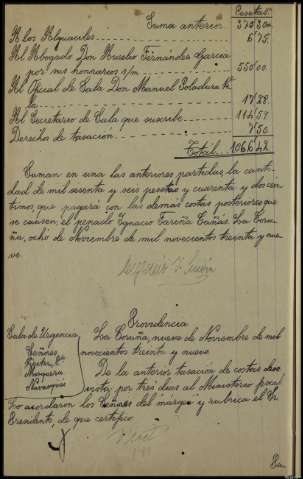 Pesetas
Suma anterior 370 300
A los Alguaciles 6'75
Al Abogado Don Aurelio Fernández Garcia
por sus honorarios s/m 550'00
Al Oficial de Sala Don Manuel Poladura
17'28
Al Secretario de Sala que suscribe 114'57
Derechos de tasación 7'50
Total 1066'42
Suman en una las anteriores partidas, la canti-
dad de mil sesenta y seis pesetas y cuarenta y dos cen-
timos, que pagará con las demás costas posteriores que
se causen, el penado Ignacio Fariña Cuiñas. La Coru-
ña, ocho de Noviembre de mil novecientos treinta y nue-
ve
Providencia
Sala de Urgencia
Señores
La Coruña, nueve de Noviembre de mil
novecientos treinta y nueve
De la anterior tasación de costas dese
vista, por tres días al Ministerio fiscal
Lo acordaron los Señores del margen y rubrica el Sr
Presidente, de que certifico